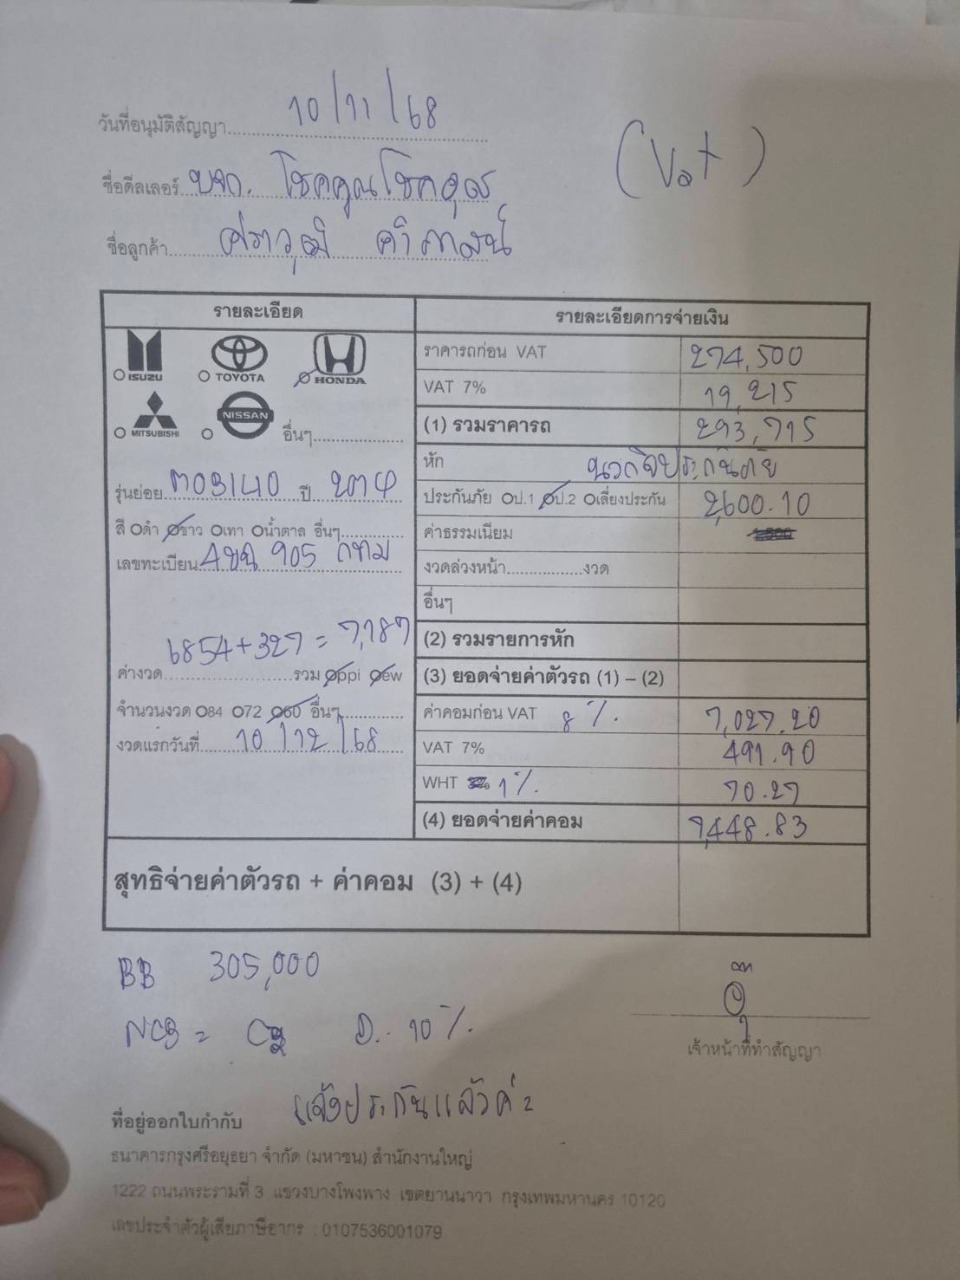 วันที่อนุมัติสัญญา 10/11/68
(Vat)
ชื่อดีลเลอร์ บจก. โชคคูณโชค
ชื่อลูกค้า ศราวุฒิ
รายละเอียด
ISUZU TOYOTA HONDA
MITSUBISHI NISSAN อื่นๆ
รุ่นย่อย MOBILIO ปี 2014
สี ดำ ขาว เทา น้ำตาล อื่นๆ
เลขทะเบียน 905 กทม
6854+327 = 7,187
ค่างวด รวม ppi ew
จำนวนงวด 84 72 60 อื่นๆ
งวดแรกวันที่ 10/12/68
รายละเอียดการจ่ายเงิน
ราคารถก่อน VAT 274,500
VAT 7% 19,215
(1) รวมราคารถ 293,715
หัก นวกิจประกันภัย
ประกันภัย ป.1 ป.2 เลี่ยงประกัน 2,600.10
ค่าธรรมเนียม
งวดล่วงหน้า................งวด
อื่นๆ
(2) รวมรายการหัก
(3) ยอดจ่ายค่าตัวรถ (1) – (2)
ค่าคอมก่อน VAT 8 % 7,027.20
VAT 7% 491.90
WHT 1% 70.27
(4) ยอดจ่ายค่าคอม 7,448.83
สุทธิจ่ายค่าตัวรถ + ค่าคอม (3) + (4)
BB 305,000
NCB = 10%
เจ้าหน้าที่ทำสัญญา
แจ้งประกันแล้วค่ะ
ที่อยู่ออกใบกำกับ
ธนาคารกรุงศรีอยุธยา จำกัด (มหาชน) สำนักงานใหญ่
1222 ถนนพระรามที่ 3 แขวงบางโพงพาง เขตยานนาวา กรุงเทพมหานคร 10120
เลขประจำตัวผู้เสียภาษีอากร : 0107536001079